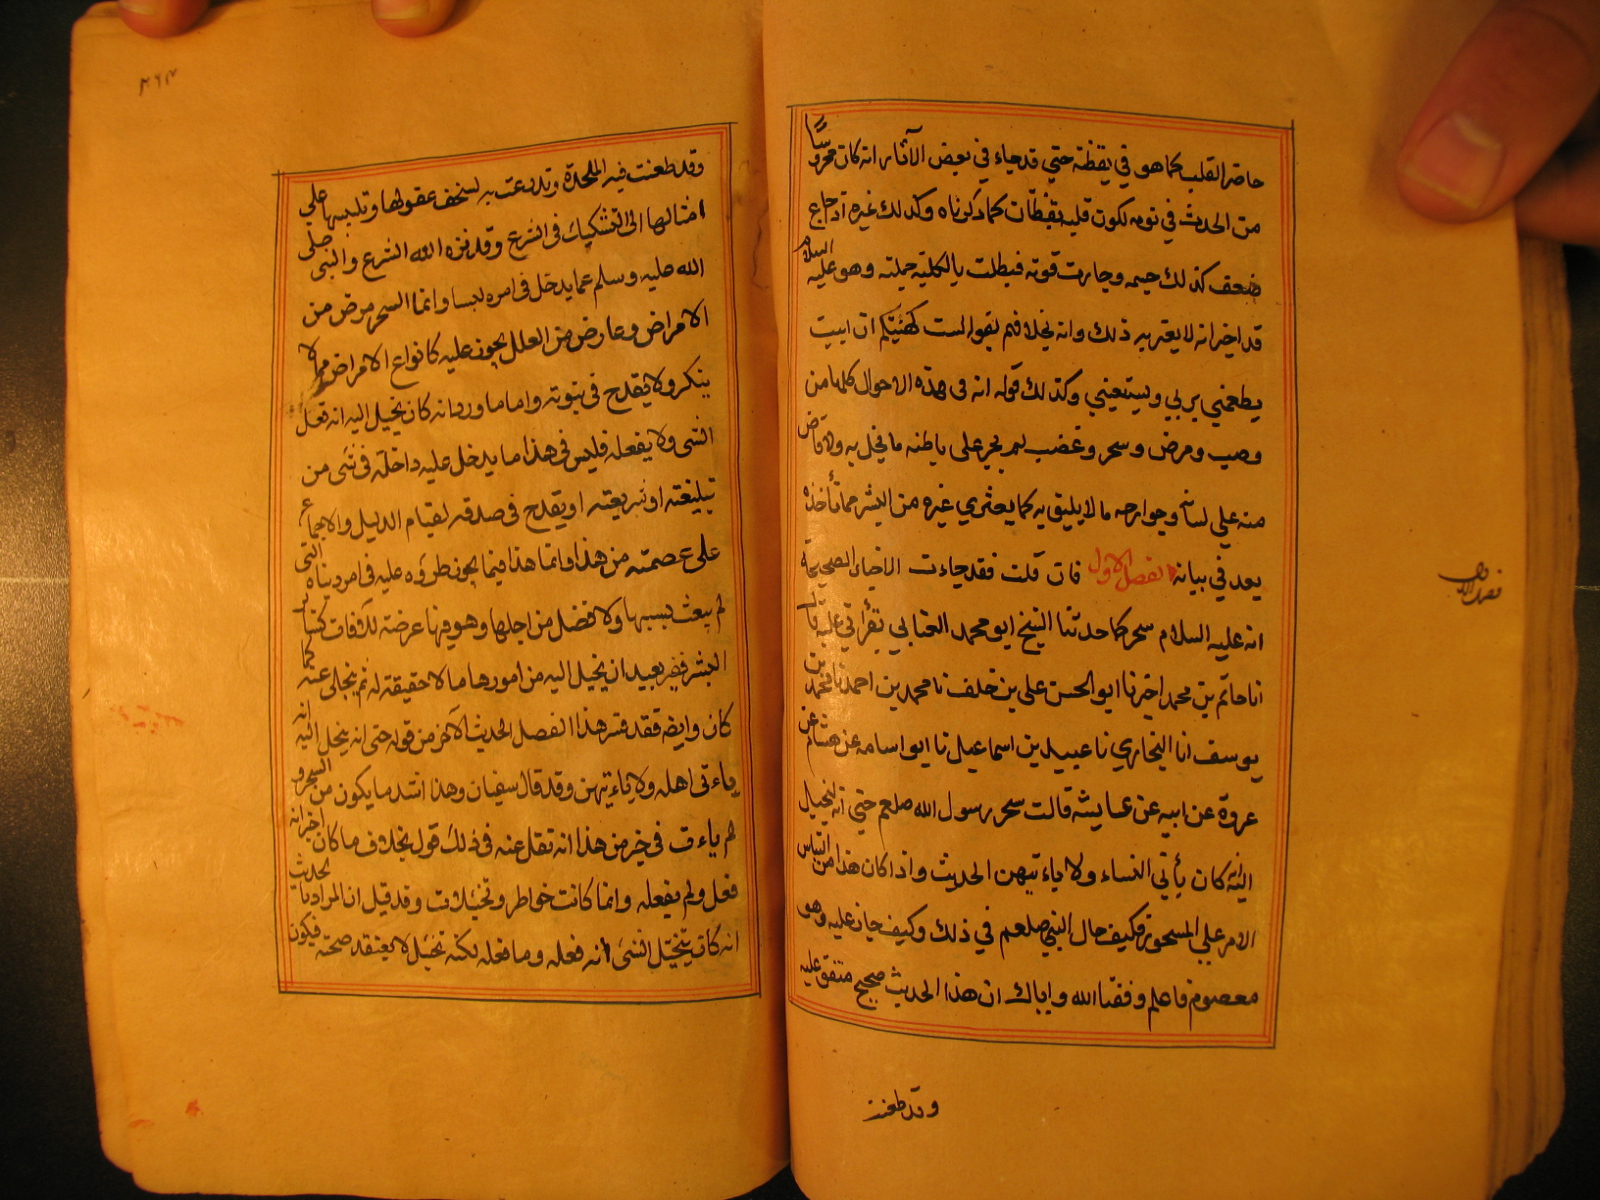 حاضر القلب كما هو في يقظته حتي قد جاء في بعض الآثار انه كان محروسًا
من الحدث في نومه لكون قلبه يقظان كما ذكرناه وكذلك غيره اذا جاع
ضعف كذلك جسمه وجارت قوته فبطلت بالكلية جملته وهو عليه السلام
قد اخبر انه لا يعتريه ذلك وانه بخلافهم بقوله لست كهئيتكم ان ابيت
يطعمني ربي ويستعيني وكذلك قوله انه في هذه الاحوال كلها من
وصب ومرض وسحر وغضب لم يجر علي باطنه ما يخل به ولا فاض
منه علي لسانه وجوارحه ما لا يليق به كما يعتري غيره من البشر مما نأخذه
بعد في بيانه الفصل الاول فان قلت فقد جاءت الاخبار الصحيحة
انه عليه السلام سحر كما حدثنا الشيخ ابو محمد العتابي بقرأتي عليه قا
انا حاتم بن محمد اخبرنا ابو الحسن علي بن خلف نا محمد بن احمد نا محمد بن
يوسف انا البخاري نا عبيد بن اسماعيل نا ابو اسامه عن هشام عن
عروة عن ابيه عن عايشه قالت سحر رسول الله صلعم حتي انه ليخيل
اليه انه كان يأتي النساء ولا ياءتيهن الحديث واذا كان هذا من التباس
الامر علي المسحور فكيف حال النبي صلعم في ذلك وكيف جاز عليه وهو
معصوم فاعلم وفقنا الله واياك ان هذا الحديث صحيح متفق عليه
وقد طعنت
فصل الاول
٣٦٣
وقد طعنت فيه الملحدة وتدرعت به لسخف عقولها وتلبيسها علي
امثالها الي التشكيك في الشرع وقد نزه الله الشرع والنبي صلي
الله عليه وسلم عما يدخل في امره لبسا وانما السحر مرض من
الامراض وعارض من العلل يجوز عليه كانواع الامراض مما لا
ينكر ولا يقدح في نبوته واما ما ورد انه كان يخيل اليه انه فعل
الشي ولا يفعله فليس في هذا ما يدخل عليه داخلة في شي من
تبليغته او شريعته او يقدح في صدقه لقيام الدليل والاجماع
علي عصمته من هذا وانما هذا فيما يجوز طروه عليه في امر دنياه التي
لم يبعث بسببها ولا فضل من اجلها وهو فيها عرضة للآفات كسائر
البشر فغير بعيد ان يخيل اليه من امورها ما لا حقيقة له ثم ينجلي عنه كما
كان وايضه فقد فسر هذا الفصل الحديث الآخر من قوله حتي انه يخيل اليه انه
ياءتي اهله ولا ياءتيهن وقد قال سفيان وهذا اشد ما يكون من السحر و
لم ياءت في خبر من هذا انه نقل عنه في ذلك قول بخلاف ما كان اخبر انه
فعل ولم يفعله وانما كانت خواطر وتخيلات وقد قيل ان المراد بالحديث
انه كان يتخيل الشي انه فعله وما فعله لكنه تخيل لا يعتقد صحته فيكون